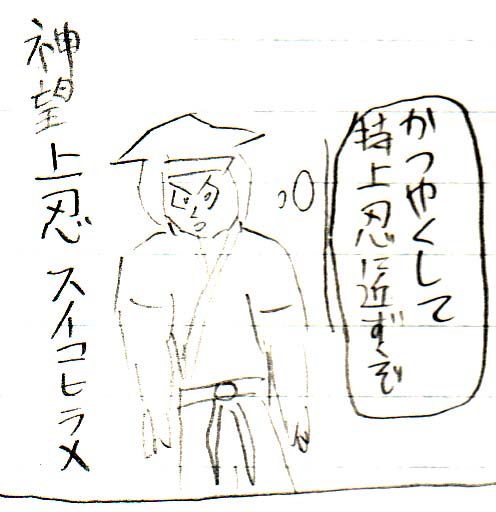 かつゆくして
特上忍に近ずくぞ
神望上忍スイコヒラメ